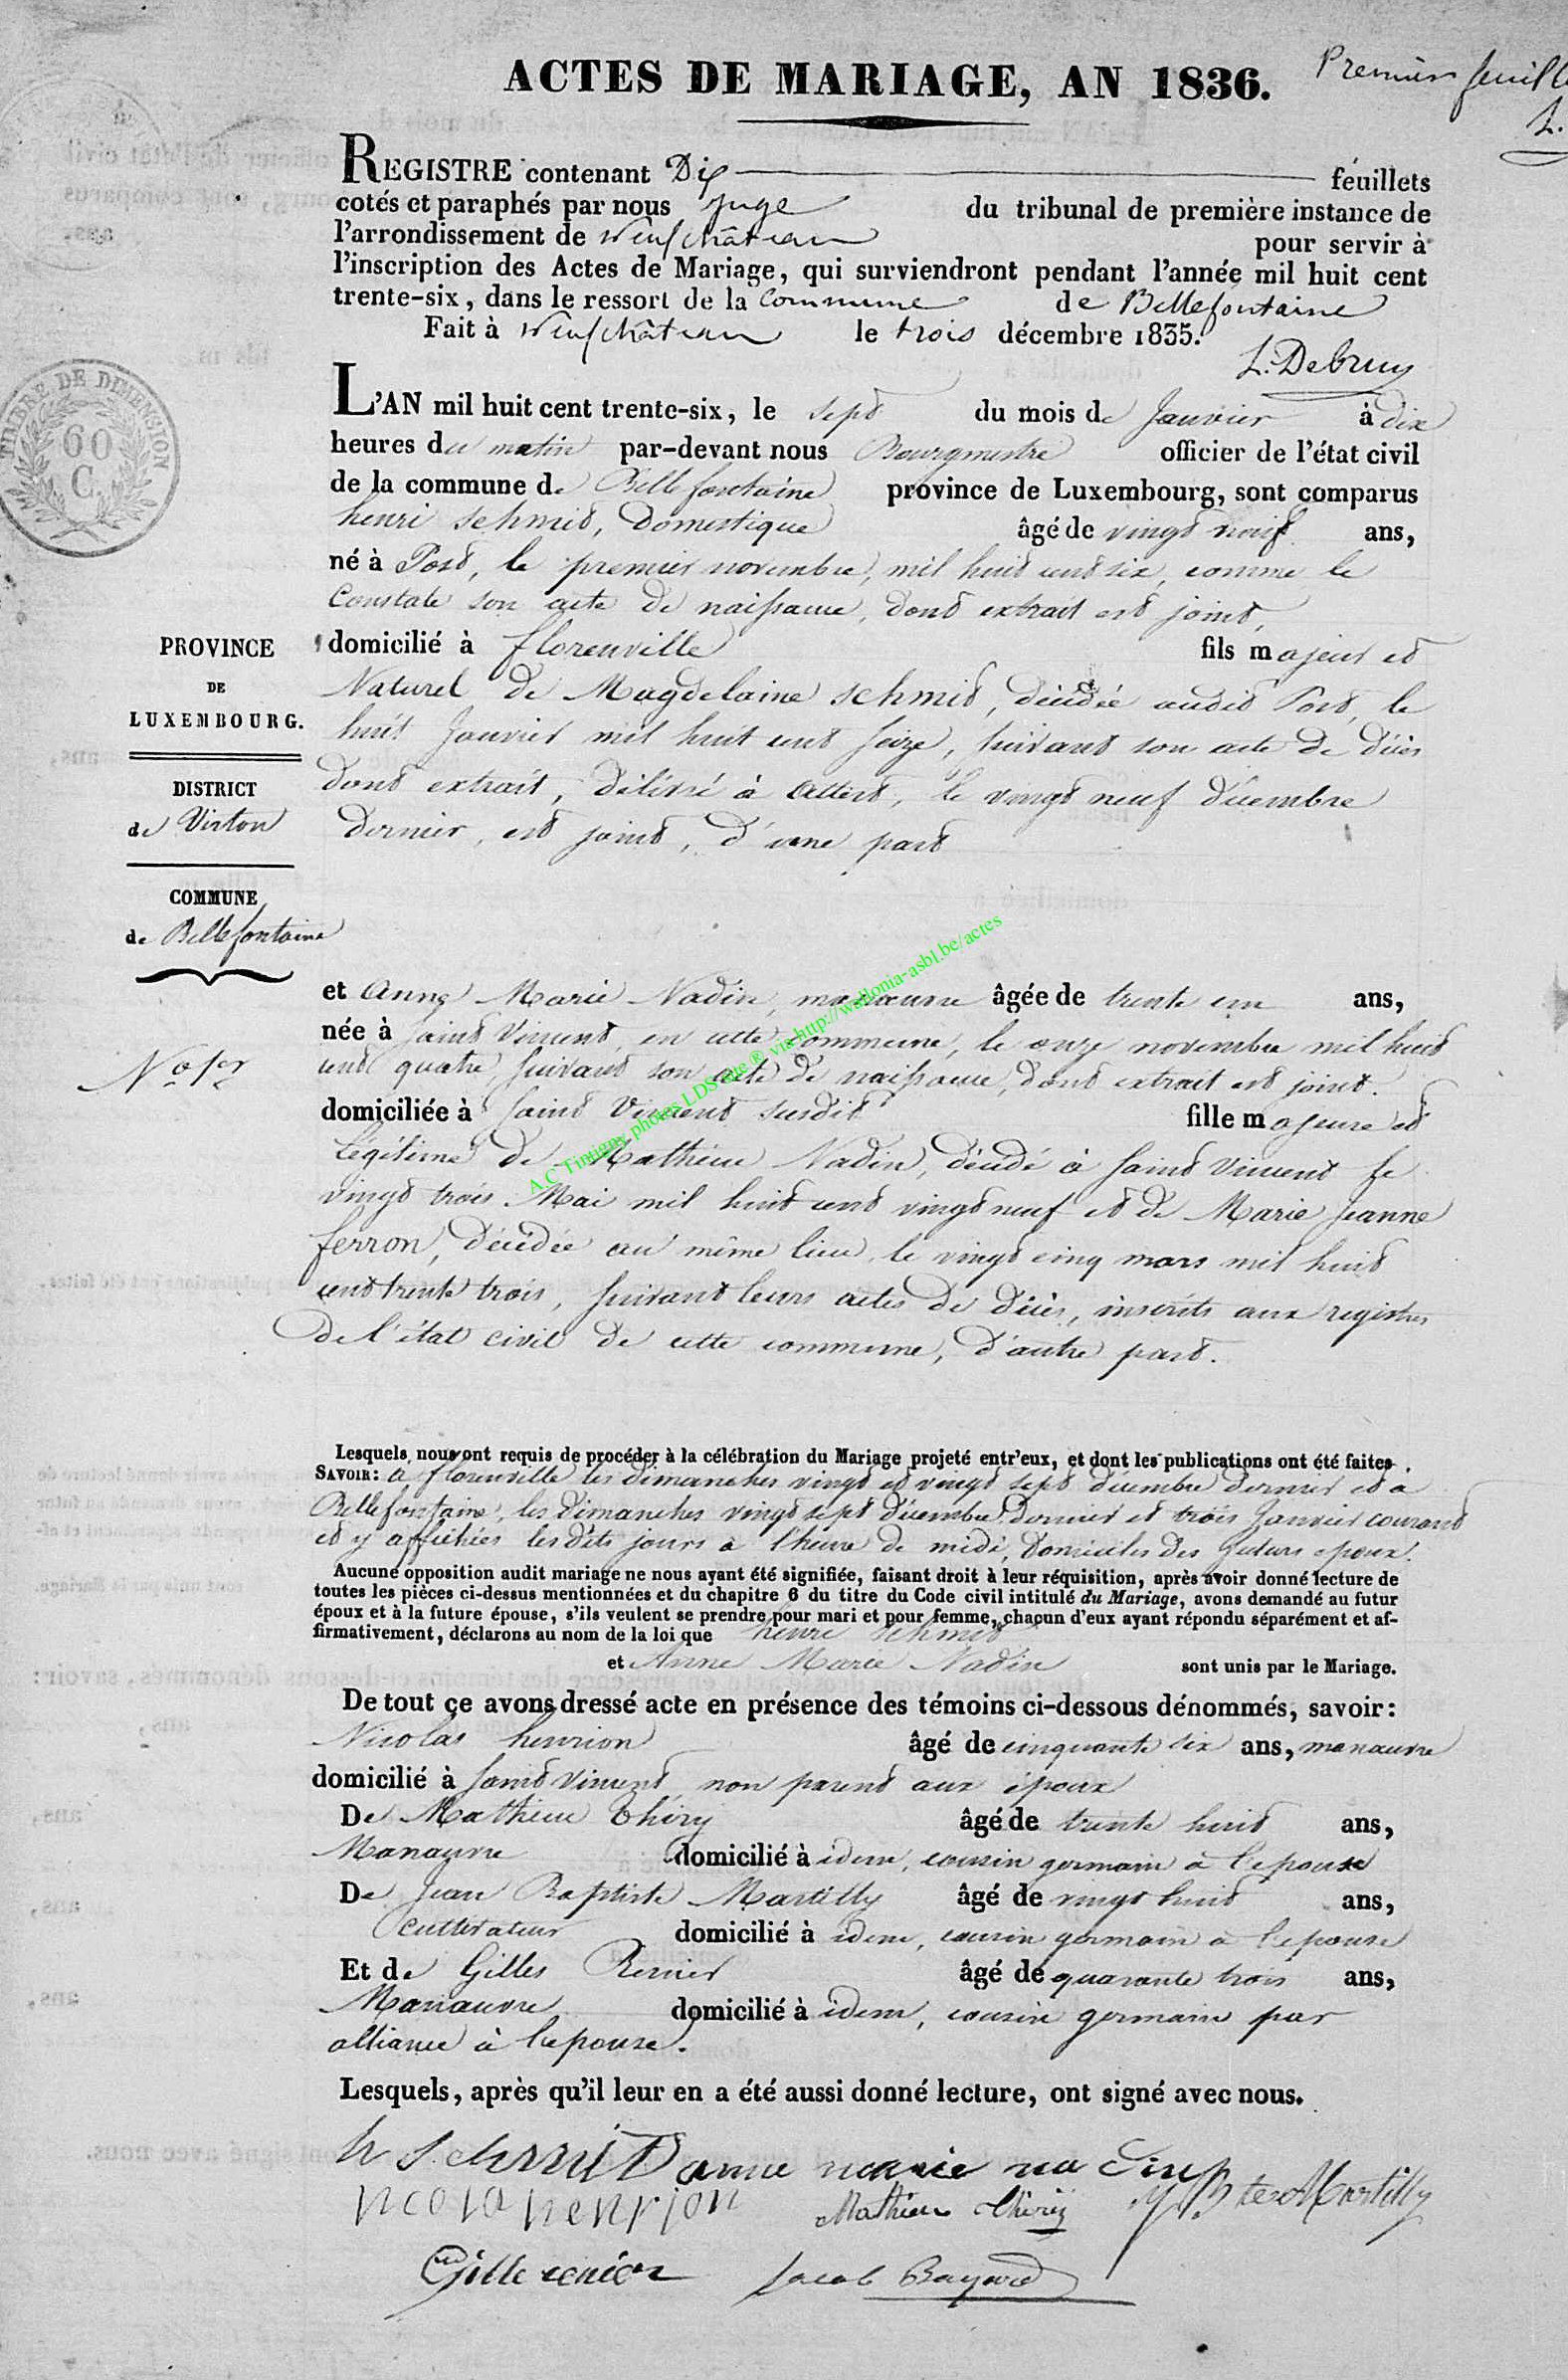 ACTES DE MARIAGE, AN 1836.
Premier feuille
L.
REGISTRE contenant Dix feuillets
cotés et paraphés par nous Juge du tribunal de première instance de
l'arrondissement de Neufchâteau pour servir à
l'inscription des Actes de Mariage, qui surviendront pendant l'année mil huit cent
trente-six, dans le ressort de la Commune de Bellefontaine
Fait à Neufchâteau le trois décembre 1835.
TIMBRE DE DIMENSION
60
C.
L'AN mil huit cent trente-six, le sept du mois de Janvier à dix
heures du matin par-devant nous Bourgmestre officier de l'état civil
de la commune de Bellefontaine province de Luxembourg, sont comparus
henri schmit, Domestique âgé de vingt neuf ans,
né à Post, le premier novembre, mil huit cent six, comme le
Constate son acte de naissance, dont extrait est joint,
domicilié à florenville fils majeur et
PROVINCE
DE
LUXEMBOURG.
DISTRICT
de Virton
COMMUNE
de Bellefontaine
Naturel de Magdelaine schmit, décédée audit Post, le
huit Janvier mil huit cent seize, suivant son acte de décès
dont extrait, délivré à Attert, le vingt neuf décembre
dernier, est joint, d'une part
et Anne Marie Nadin, manœuvre âgée de trente un ans,
née à Saint Vincent, en cette commune, le onze novembre mil huit
No 1er
cent quatre, suivant son acte de naissance, dont extrait est joint.
domiciliée à Saint Vincent susdit fille majeure et
Légitime de Mathieu Nadin, décédé à Saint Vincent le
vingt trois Mai mil huit cent vingt neuf et de Marie Jeanne
ferron, décédée au même lieu, le vingt cinq mars mil huit
cent trente trois, suivant leurs actes de décès, inscrits aux registres
de l'état civil de cette commune, d'autre part.
A.C Tintigny photos LDS site ® via http://wallonia-asbl.be/actes
Lesquels nous ont requis de procéder à la célébration du Mariage projeté entr'eux, et dont les publications ont été faites.
SAVOIR: à florenville les dimanches vingt et vingt sept décembre dernier et à
Bellefontaine, les dimanches vingt sept décembre dernier et trois Janvier courant
et y affichées lesdits jours à l'heure de midi, domiciles des futurs epoux.
Aucune opposition audit mariage ne nous ayant été signifiée, faisant droit à leur réquisition, après avoir donné lecture de
toutes les pièces ci-dessus mentionnées et du chapitre 6 du titre du Code civil intitulé du Mariage, avons demandé au futur
époux et à la future épouse, s'ils veulent se prendre pour mari et pour femme, chacun d'eux ayant répondu séparément et af-
firmativement, déclarons au nom de la loi que henri schmit
et Anne Marie Nadin sont unis par le Mariage.
De tout ce avons dressé acte en présence des témoins ci-dessous dénommés, savoir:
Nicolas henrion âgé de cinquante six ans, manœuvre
domicilié à Saint Vincent non parent aux époux
De Mathieu Thiry âgé de trente huit ans,
Manœuvre domicilié à idem, cousin germain à l'epouse
De Jean Baptiste Martilly âgé de vingt huit ans,
Cultivateur domicilié à idem, cousin germain à l'epouse
Et de Gilles Renier âgé de quarante trois ans,
Manœuvre domicilié à idem, cousin germain par
alliance à l'epouse.
Lesquels, après qu'il leur en a été aussi donné lecture, ont signé avec nous.
h schmit anne marie nadin
Mathieu Thiry Martilly
Gille renier Jacob Bayard